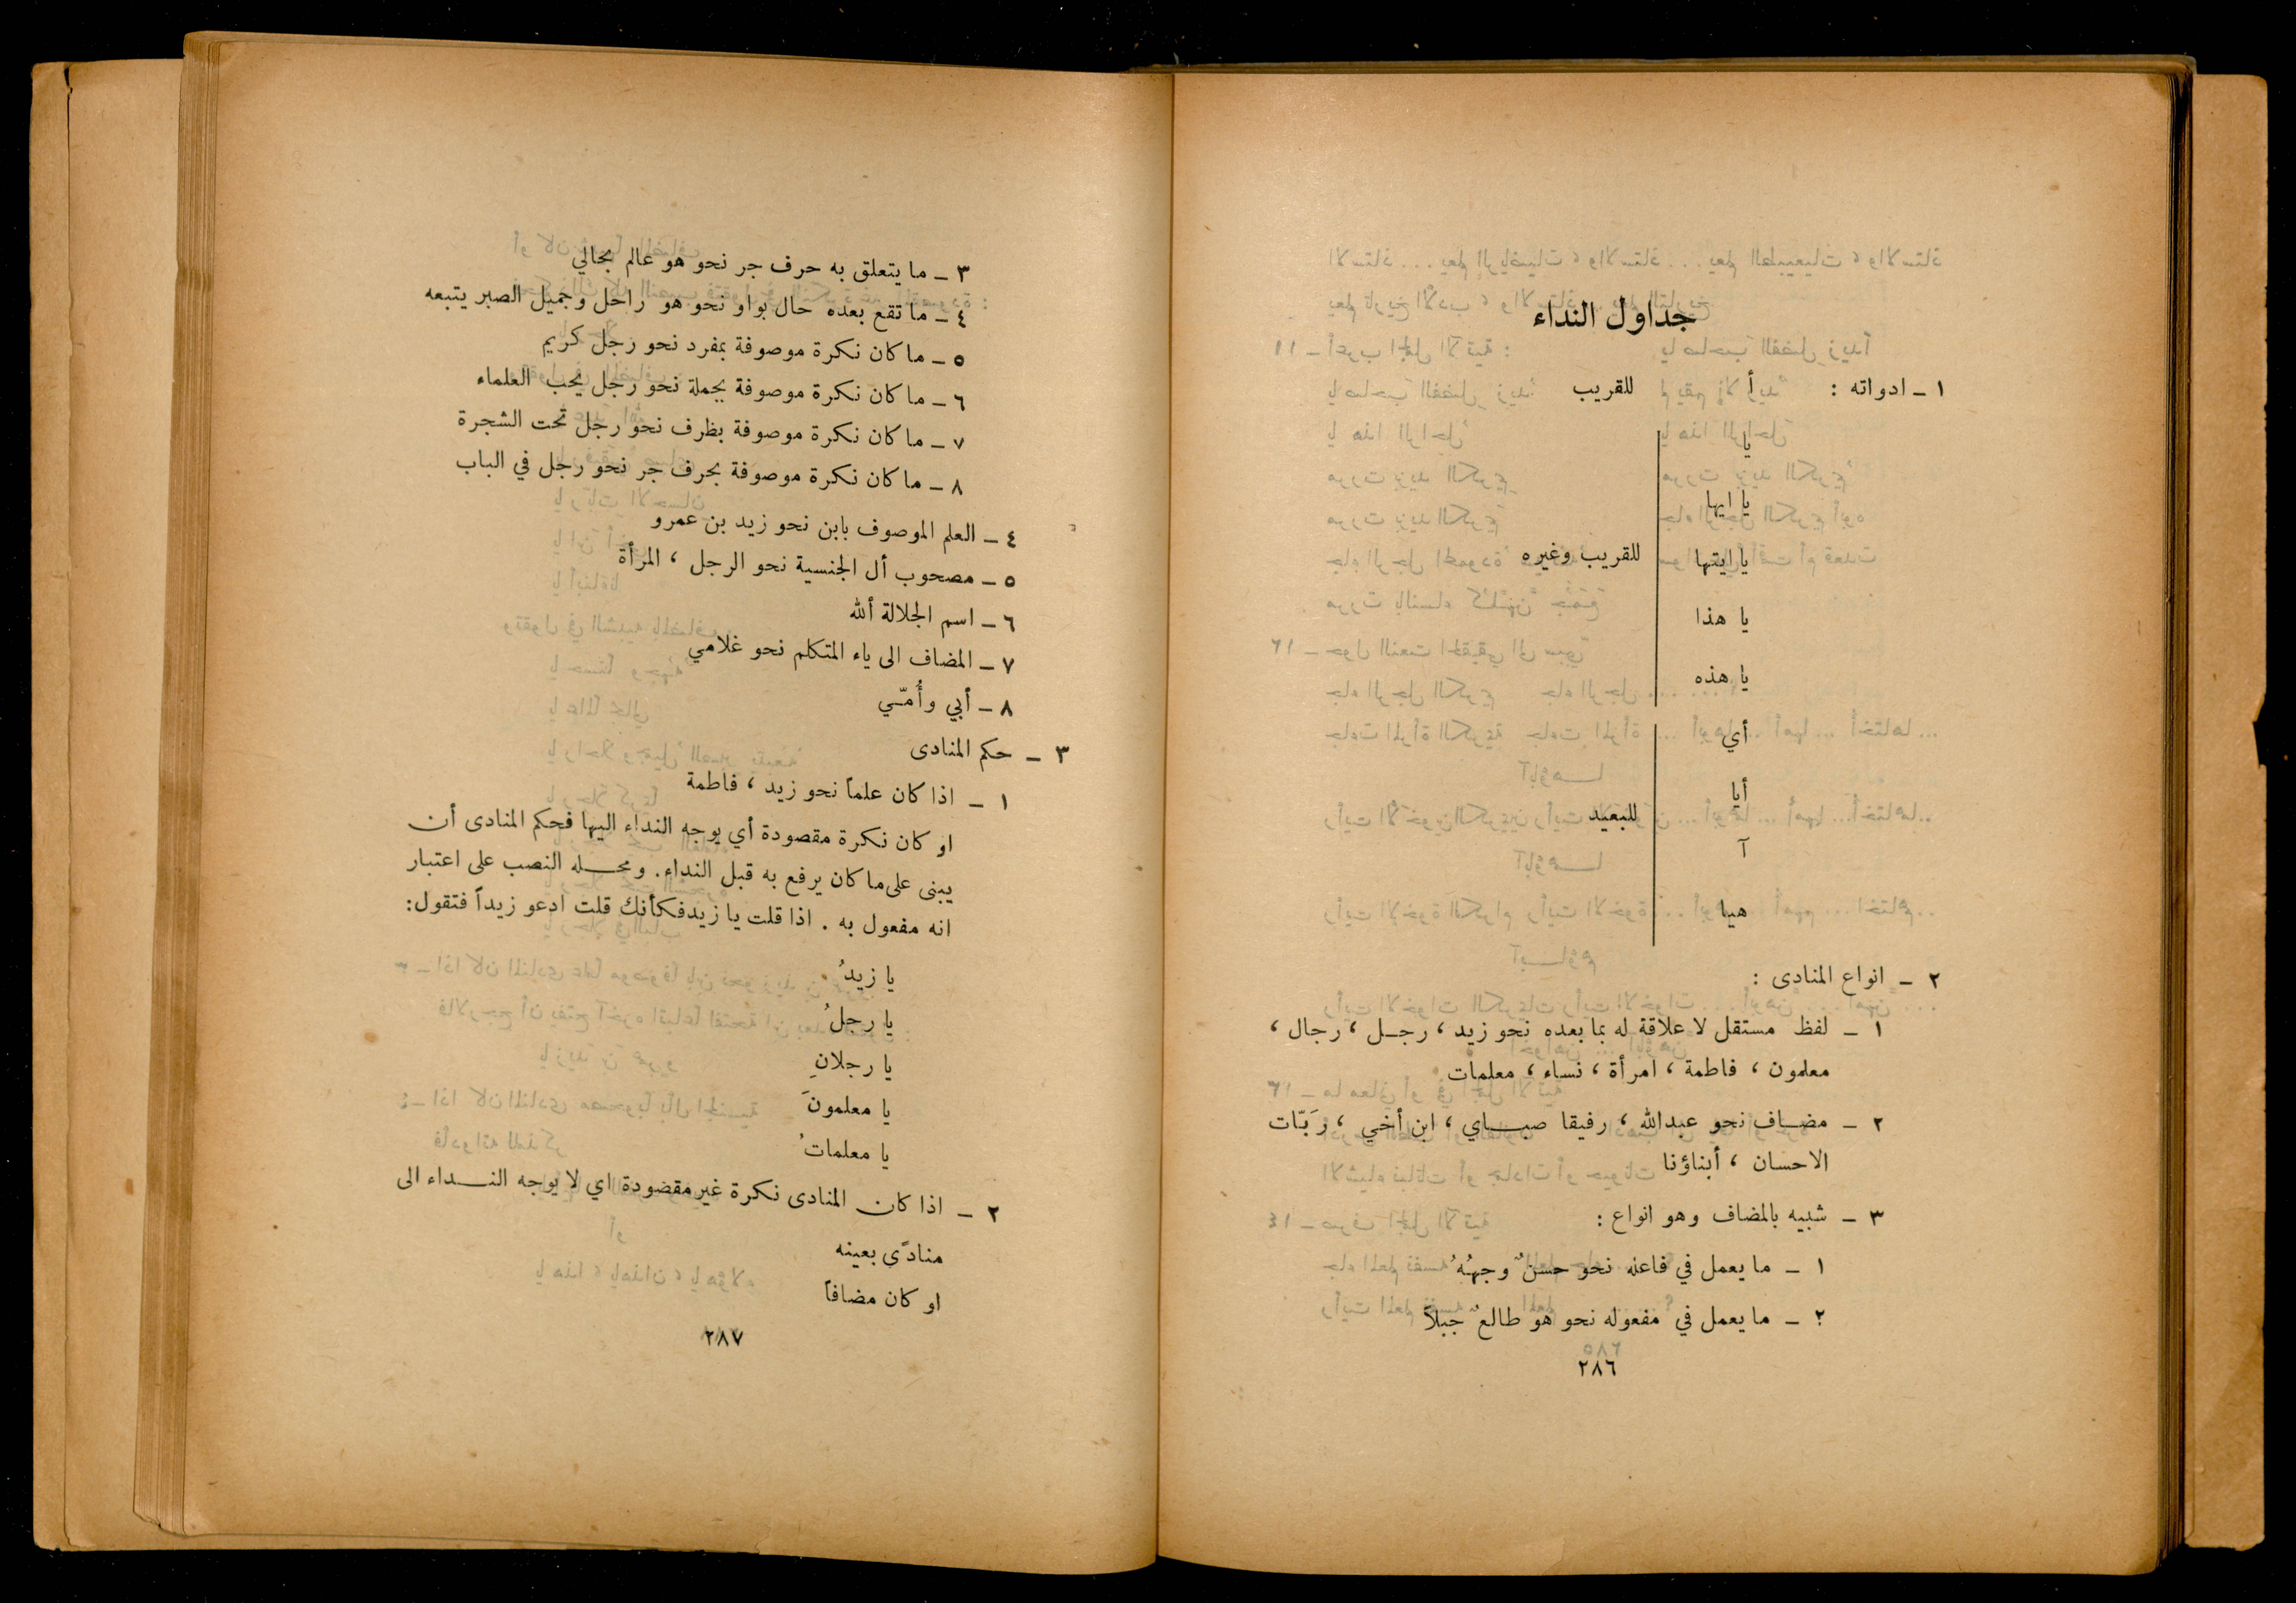 جداول النداء
١ ـ ادواته : أ للقريب
يا
يا ايها
يا ايتها للقريب وغيره
يا هذا
يا هذه
أي
أيا
للبعيد
آ
هيا
٢ ـ انواع المنادى :
١ ـ لفظ مستقل لا علاقة له بما بعده نحو زيد ، رجل ، رجال ،
معلمون ، فاطمة ، امرأة ، نساء ، معلمات
٢ ـ مضاف نحو عبدالله ، رفيقا صباي ، ابن أخي ، رَبّات
الاحسان ، أبناؤنا
٣ ـ شبيه بالمضاف وهو انواع :
١ ـ ما يعمل في فاعله نحو حسنٌ وجهُهُ
٢ ـ ما يعمل في مفعوله نحو هو طالعٌ جبلاً
٢٨٦
٣ ـ ما يتعلق به حرف جر نحو هو عالم بحالي
٤ ـ ما تقع بعده حال بواو نحو هو راحل وجميل الصبر يتبعه
٥ ـ ما كان نكرة موصوفة بمفرد نحو رجل كريم
٦ ـ ما كان نكرة موصوفة بجملة نحو رجل يحب العلماء
٧ ـ ما كان نكرة موصوفة بظرف نحو رجل تحت الشجرة
٨ ـ ما كان نكرة موصوفة بحرف جر نحو رجل في الباب
٤ ـ العلم الموصوف بابن نحو زيد بن عمرو
٥ ـ مصحوب أل الجنسية نحو الرجل ، المرأة
٦ ـ اسم الجلالة ألله
٧ ـ المضاف الى ياء المتكلم نحو غلامي
٨ ـ أبي وأُمّي
٣ ـ حكم المنادى
١ ـ اذا كان علماً نحو زيد ، فاطمة
او كان نكرة مقصودة أي يوجه النداء اليها فحكم المنادى أن
يبنى على ما كان يرفع به قبل النداء . ومحله النصب على اعتبار
انه مفعول به . اذا قلت يا زيد فكأنك قلت ادعو زيداً فتقول :
يا زيدُ
يا رجلُ
يا رجلانِ
يا معلمونَ
يا معلماتُ
٢ ـ اذا كان المنادى نكرة غير مقضودة اي لا يوجه النداء الى
منادًى بعينه
او كان مضافاً
٢٨٧